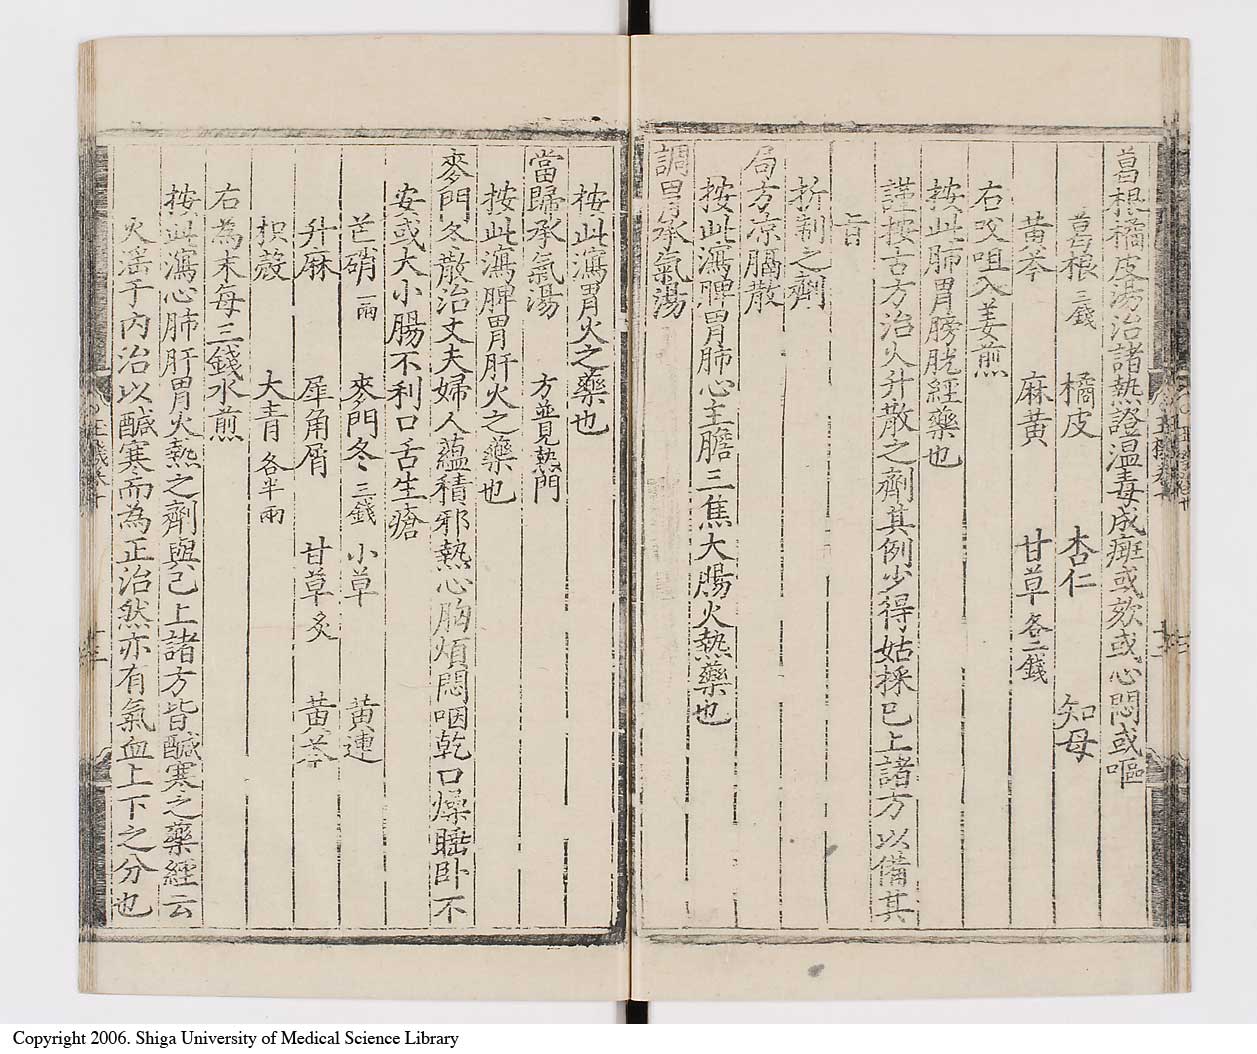 葛根橘皮湯治諸熱證温毒成癍或欬或心悶或嘔
葛根三錢 橘皮 杏仁 知母
黄芩 麻黄 甘草各二錢
右㕮咀入姜煎
按此肺胃膀胱經藥也
謹按古方治火升散之劑其例少得姑採已上諸方以備其
旨
折制之劑
局方凉膈散
按此瀉脾胃肺心主膽三焦大腸火熱藥也
調胃承氣湯
按此瀉胃火之藥也
當歸承氣湯 方並見熱門
按此瀉脾胃肝火之藥也
麥門冬散治丈夫婦人蘊積邪熱心胸煩悶咽乾口燥睡卧不
安或大小腸不利口舌生瘡
芒硝一兩 麥門冬三錢 小草 黄連
升麻 犀角屑 甘草炙 黄芩
枳殼 大青各半兩
右為末每三錢水煎
按此瀉心肺肝胃火熱之劑與已上諸方皆鹹寒之藥經云
火淫于内治以鹹寒而為正治然亦有氣血上下之分也
Copyright 2006. Shiga University of Medical Science Library